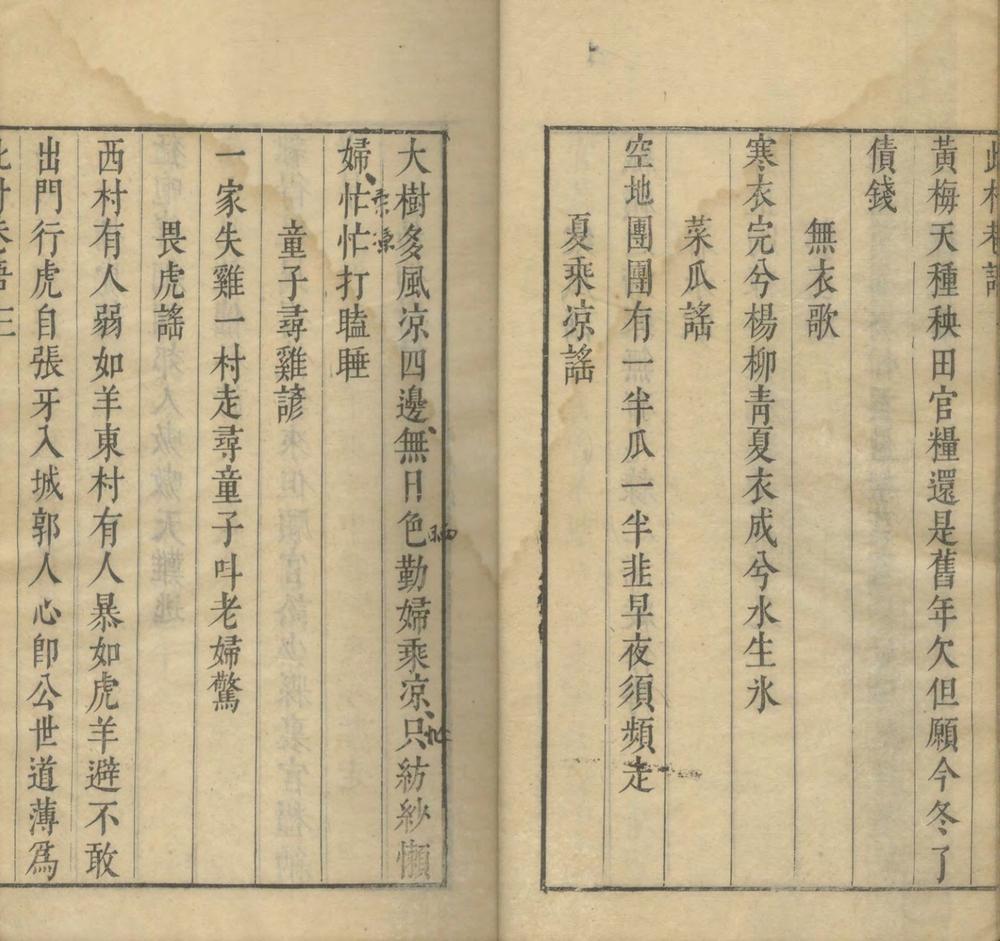 此村巷謡
黃梅天種秧田官糧還是舊年欠但願今冬了
債錢
無衣歌
寒衣完兮楊柳靑夏衣成兮水生氷
菜瓜謡
空地團團有一半瓜一半韭早夜須頻走
夏乘凉謡
大樹多風凉四邊無日色勤婦乘凉只紡紗懶
婦忙忙打瞌睡
乘凉
晒
忙
童子尋雞諺
一家失雞一村走尋童子叫老婦驚
畏虎謡
西村有人弱如羊東村有人暴如虎羊避不敢
出門行虎自張牙入城郭人心卽公世道薄爲